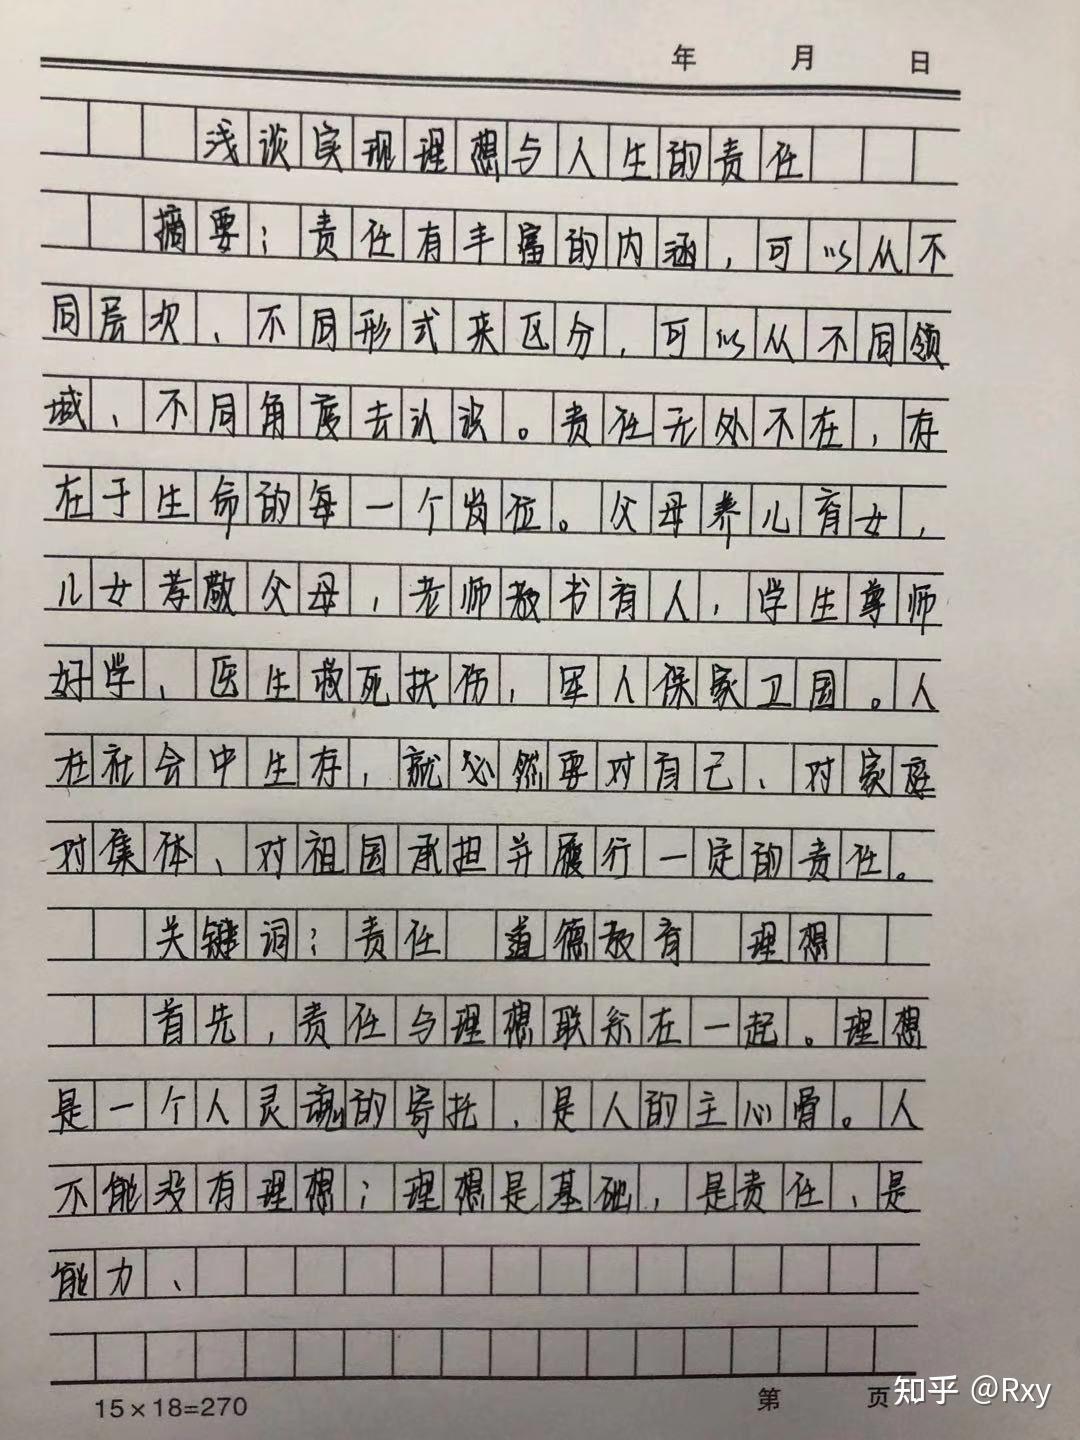 年 月 日
浅谈实现理想与人生的责任
摘要：责任有丰富的内涵，可以从不
同层次、不同形式来区分，可以从不同领
域、不同角度去认识。责任无处不在，存
在于生命的每一个岗位。父母养儿育女，
儿女孝敬父母，老师教书育人，学生尊师
好学、医生救死扶伤，军人保家卫国。人
在社会中生存，就必然要对自己、对家庭
对集体、对祖国承担并履行一定的责任。
关键词：责任 道德教育 理想
首先，责任与理想联系在一起。理想
是一个人灵魂的寄托，是人的主心骨。人
不能没有理想；理想是基础，是责任、是
能力、
15×18=270 第 页
知乎 @Rxy